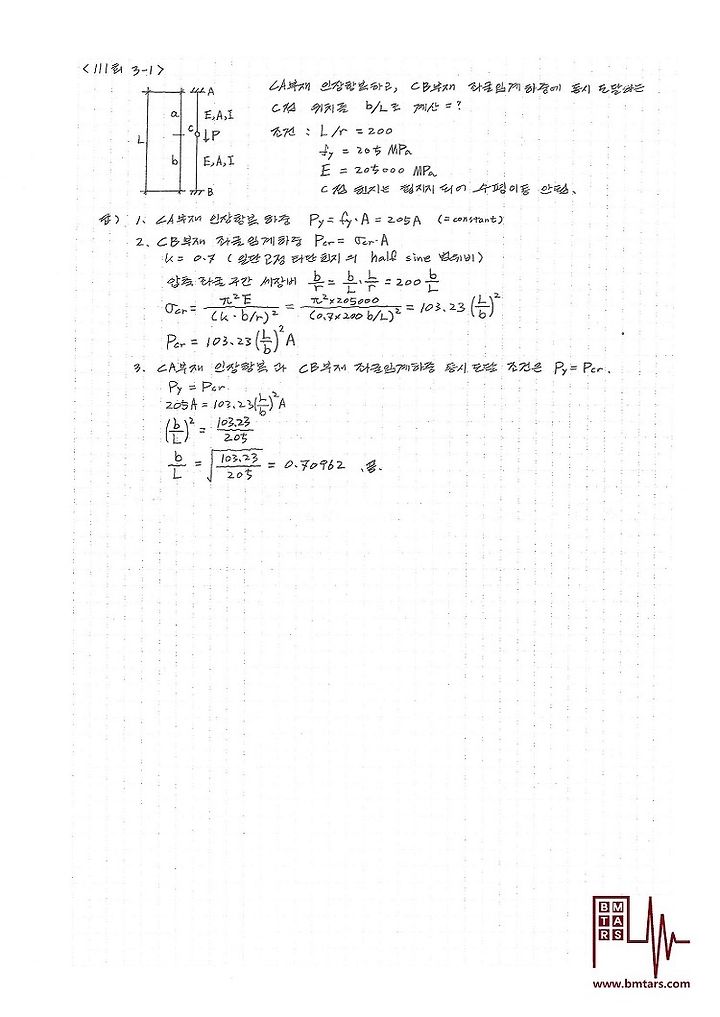 <111회 3-1>
A
a
E,A,I
C
↓P
L
b
E,A,I
B
CA부재 인장항복하고, CB부재 좌굴임계하중에 동시 도달하는
C점 위치를 b/L로 계산 = ?
조건 : L/r = 200
fy = 205 MPa
E = 205000 MPa
C점 힌지는 횡지지 되어 수평이동 안됨.
풀) 1. CA부재 인장항복 하중 Py = fy·A = 205A (= constant)
2. CB부재 좌굴임계하중 Pcr = σcr·A
k = 0.7 (일단고정 타단힌지의 half sine 범위비)
압축 좌굴 구간 세장비 b/r = b/L · L/r = 200 b/L
σcr = π²E/(k·b/r)² = π²×205000/(0.7×200 b/L)² = 103.23 (L/b)²
Pcr = 103.23 (L/b)² A
3. CA부재 인장항복과 CB부재 좌굴임계하중 동시 도달 조건은 Py = Pcr.
Py = Pcr
205A = 103.23(L/b)²A
(b/L)² = 103.23/205
b/L = √(103.23/205) = 0.70962 .끝.
BM
TA
RS
www.bmtars.com